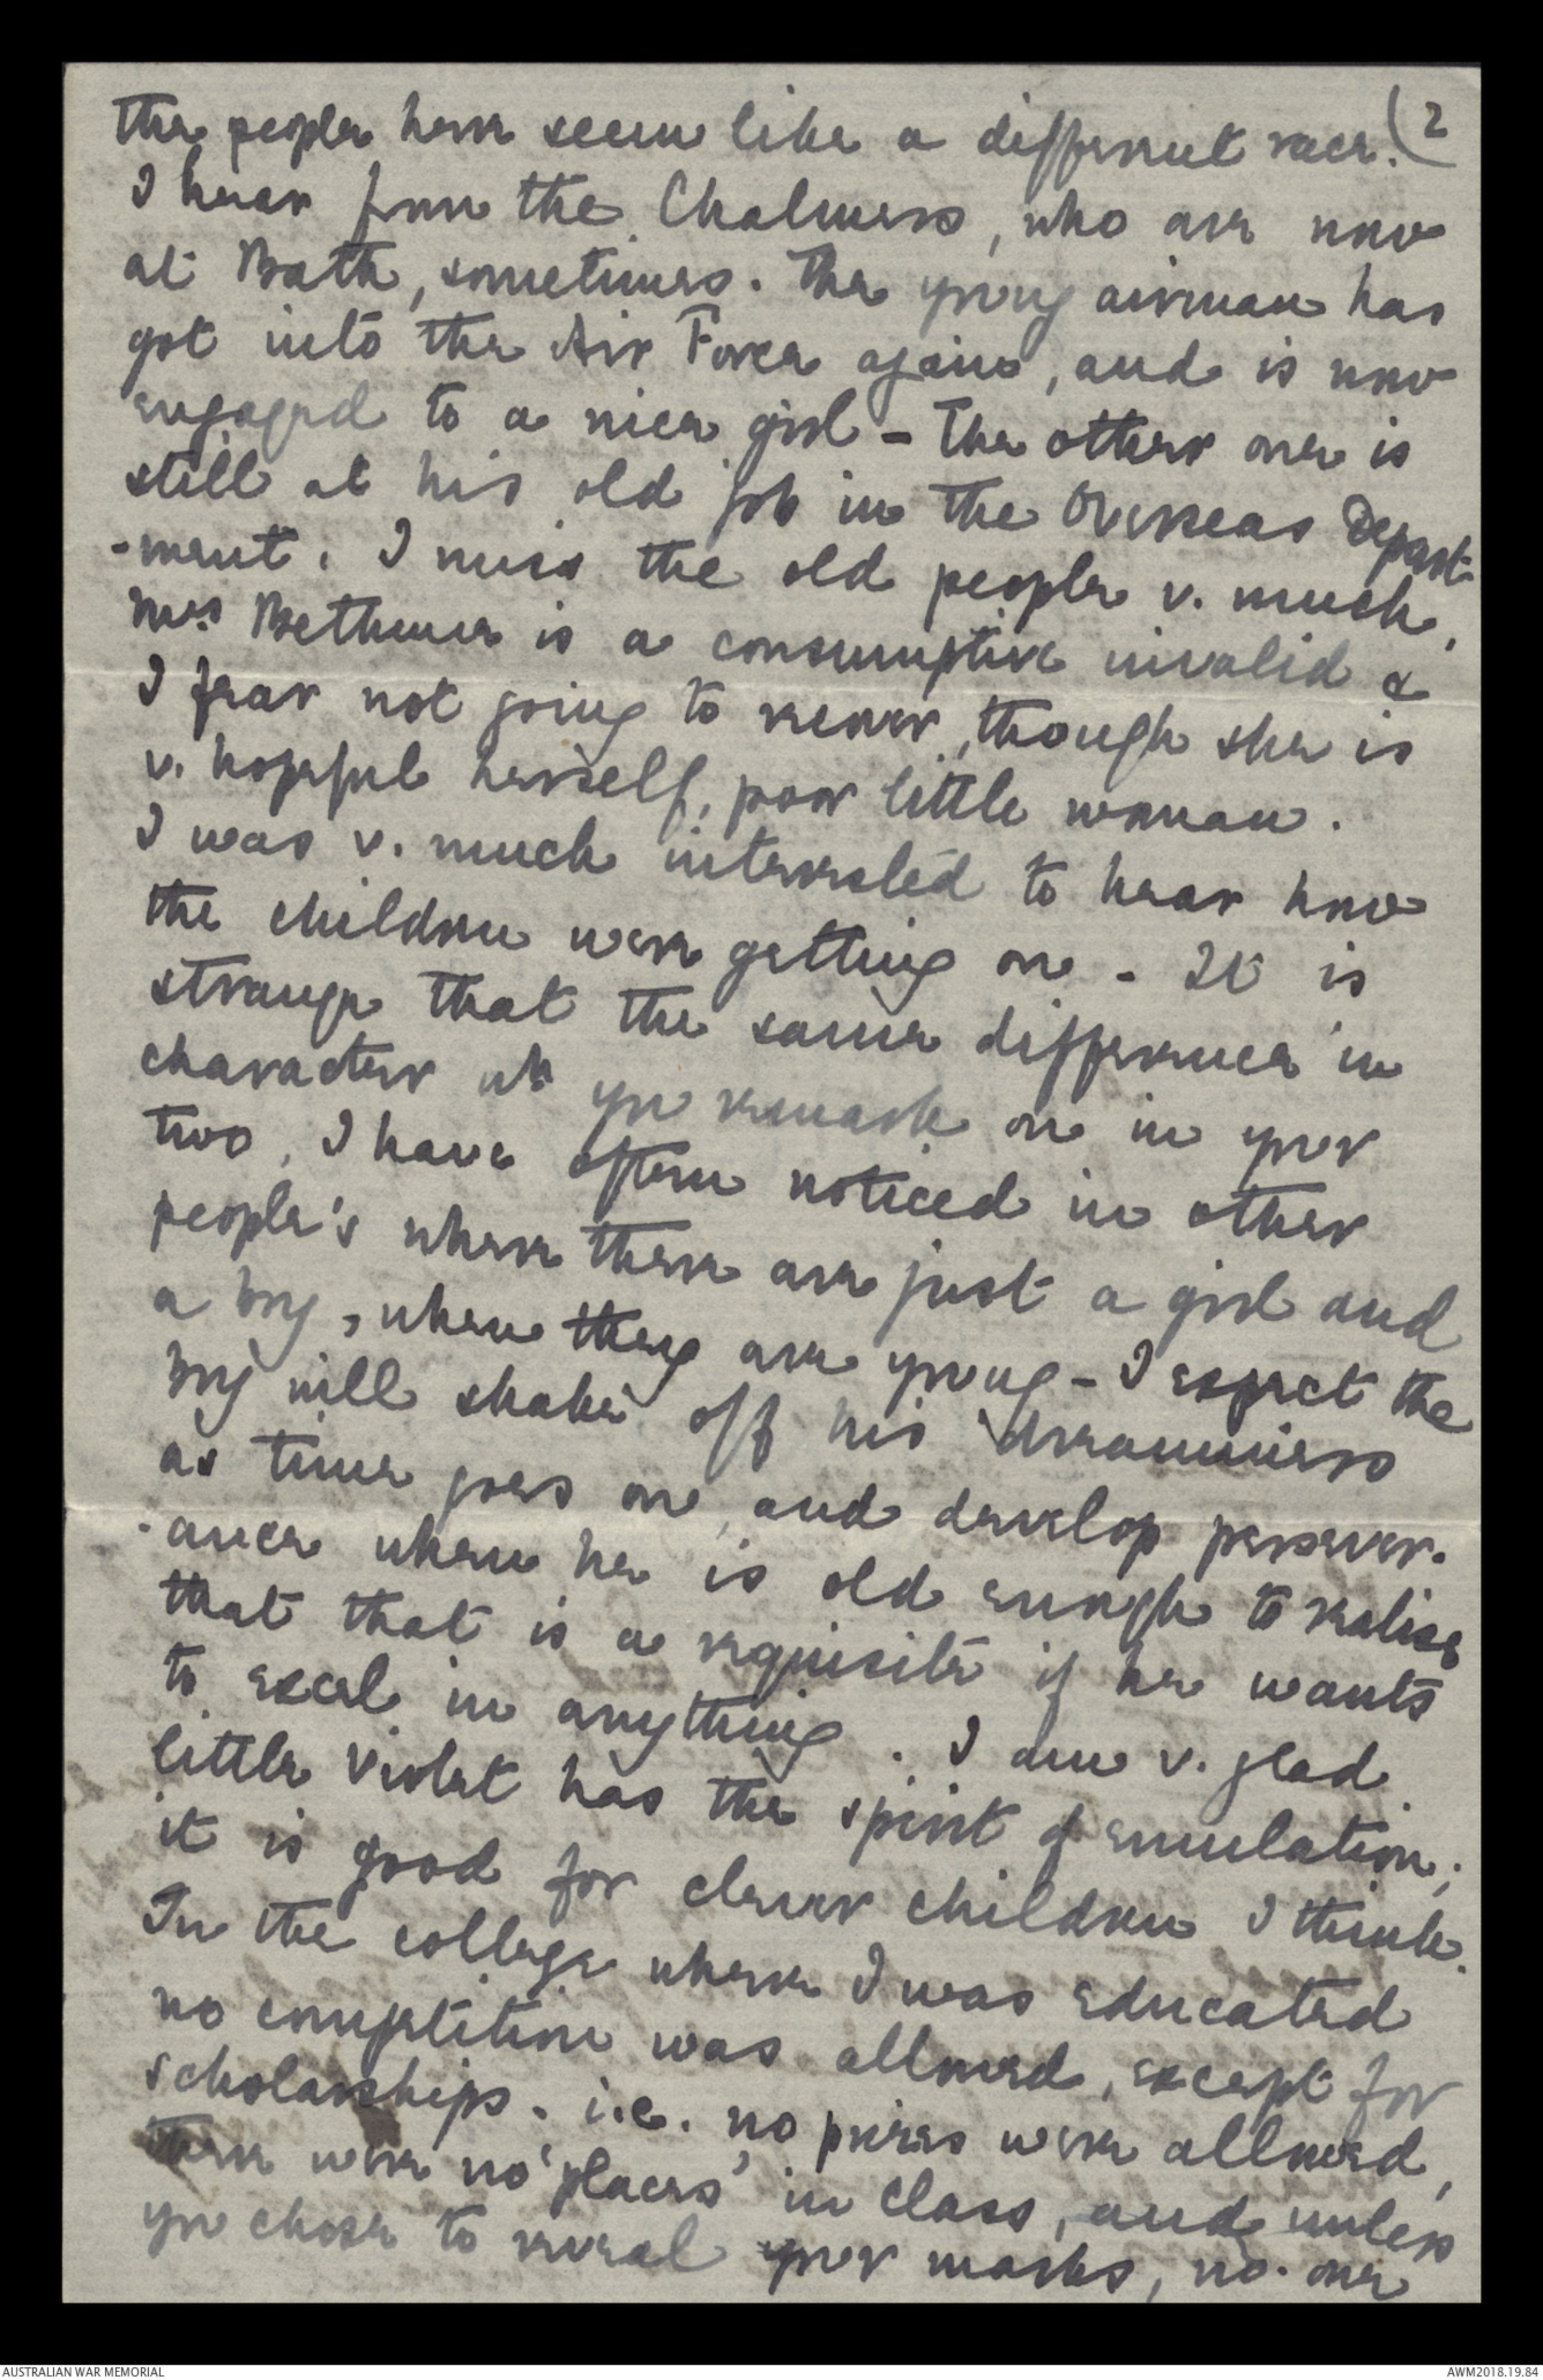 the people here seem like a different race. (2
I hear from the Chalmers, who are now
at Bath, sometimes. The young airman has
got into the Air Force again, and is now
engaged to a nice girl - The other one is
still at his old job in the Overseas Depart-
-ment. I miss the old people v. much.
Mrs Bethune is a consumptive invalid &
I fear not going to recover, though she is
v. hopeful herself, poor little woman.
I was v. much interested to hear how
the children were getting on - It is
strange that the same difference in
character wh you remark on in your
two, I have often noticed in other
people's where there are just a girl and
a boy, when they are young - I expect the
boy will shake off his dreaminess
as time goes on, and develop persever-
-ance when he is old enough to realise
that that is a requisite if he wants
to excel in anything. I am v. glad
little Violet has the spirit of emulation;
it is good for clever children I think.
In the college where I was educated
no competition was allowed, except for
scholarships. i.e. no prizes were allowed,
there were no 'places' in class, and unless
you chose to reveal your marks, no-one
AUSTRALIAN WAR MEMORIAL
AWM2018.19.84